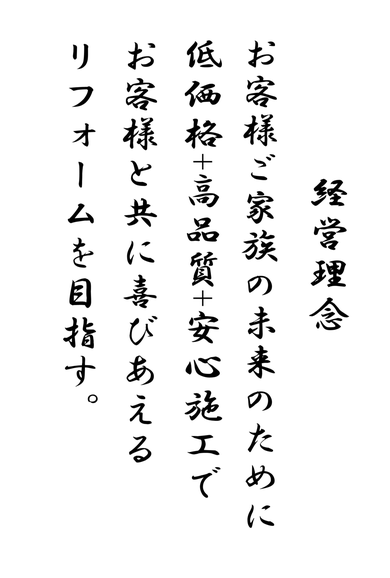 経営理念
お客様ご家族の未来のために
低価格+高品質+安心施工で
お客様と共に喜びあえる
リフォームを目指す。